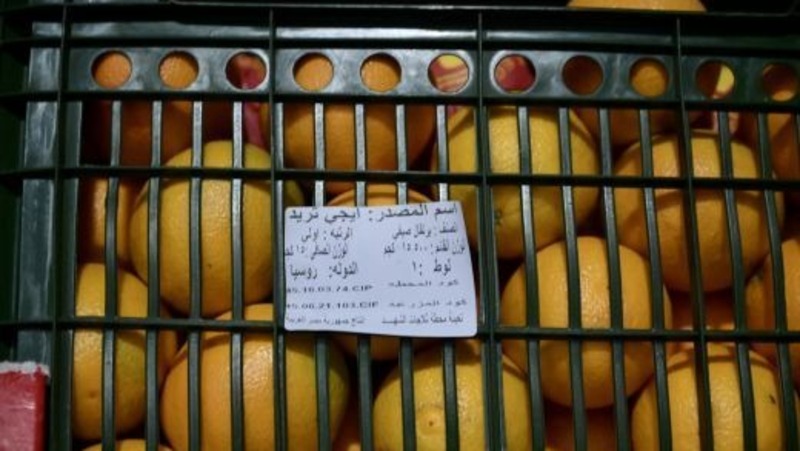 اسم المصدر: ايجي تريد
الصنف: برتقال صيفي الرتبه: اولى
لوزن القائم: ١٥٥٠٠ لجم لوزن الصافي ١٥٠ لجم
لوط :١ الدوله: روسيا
كود المحطه 45.16.03.74.CIP
كود المزرعه 45.06.21.103.CIP
تعبئة محطة ثلاجات الشهد انتاج جمهورية مصر العربية